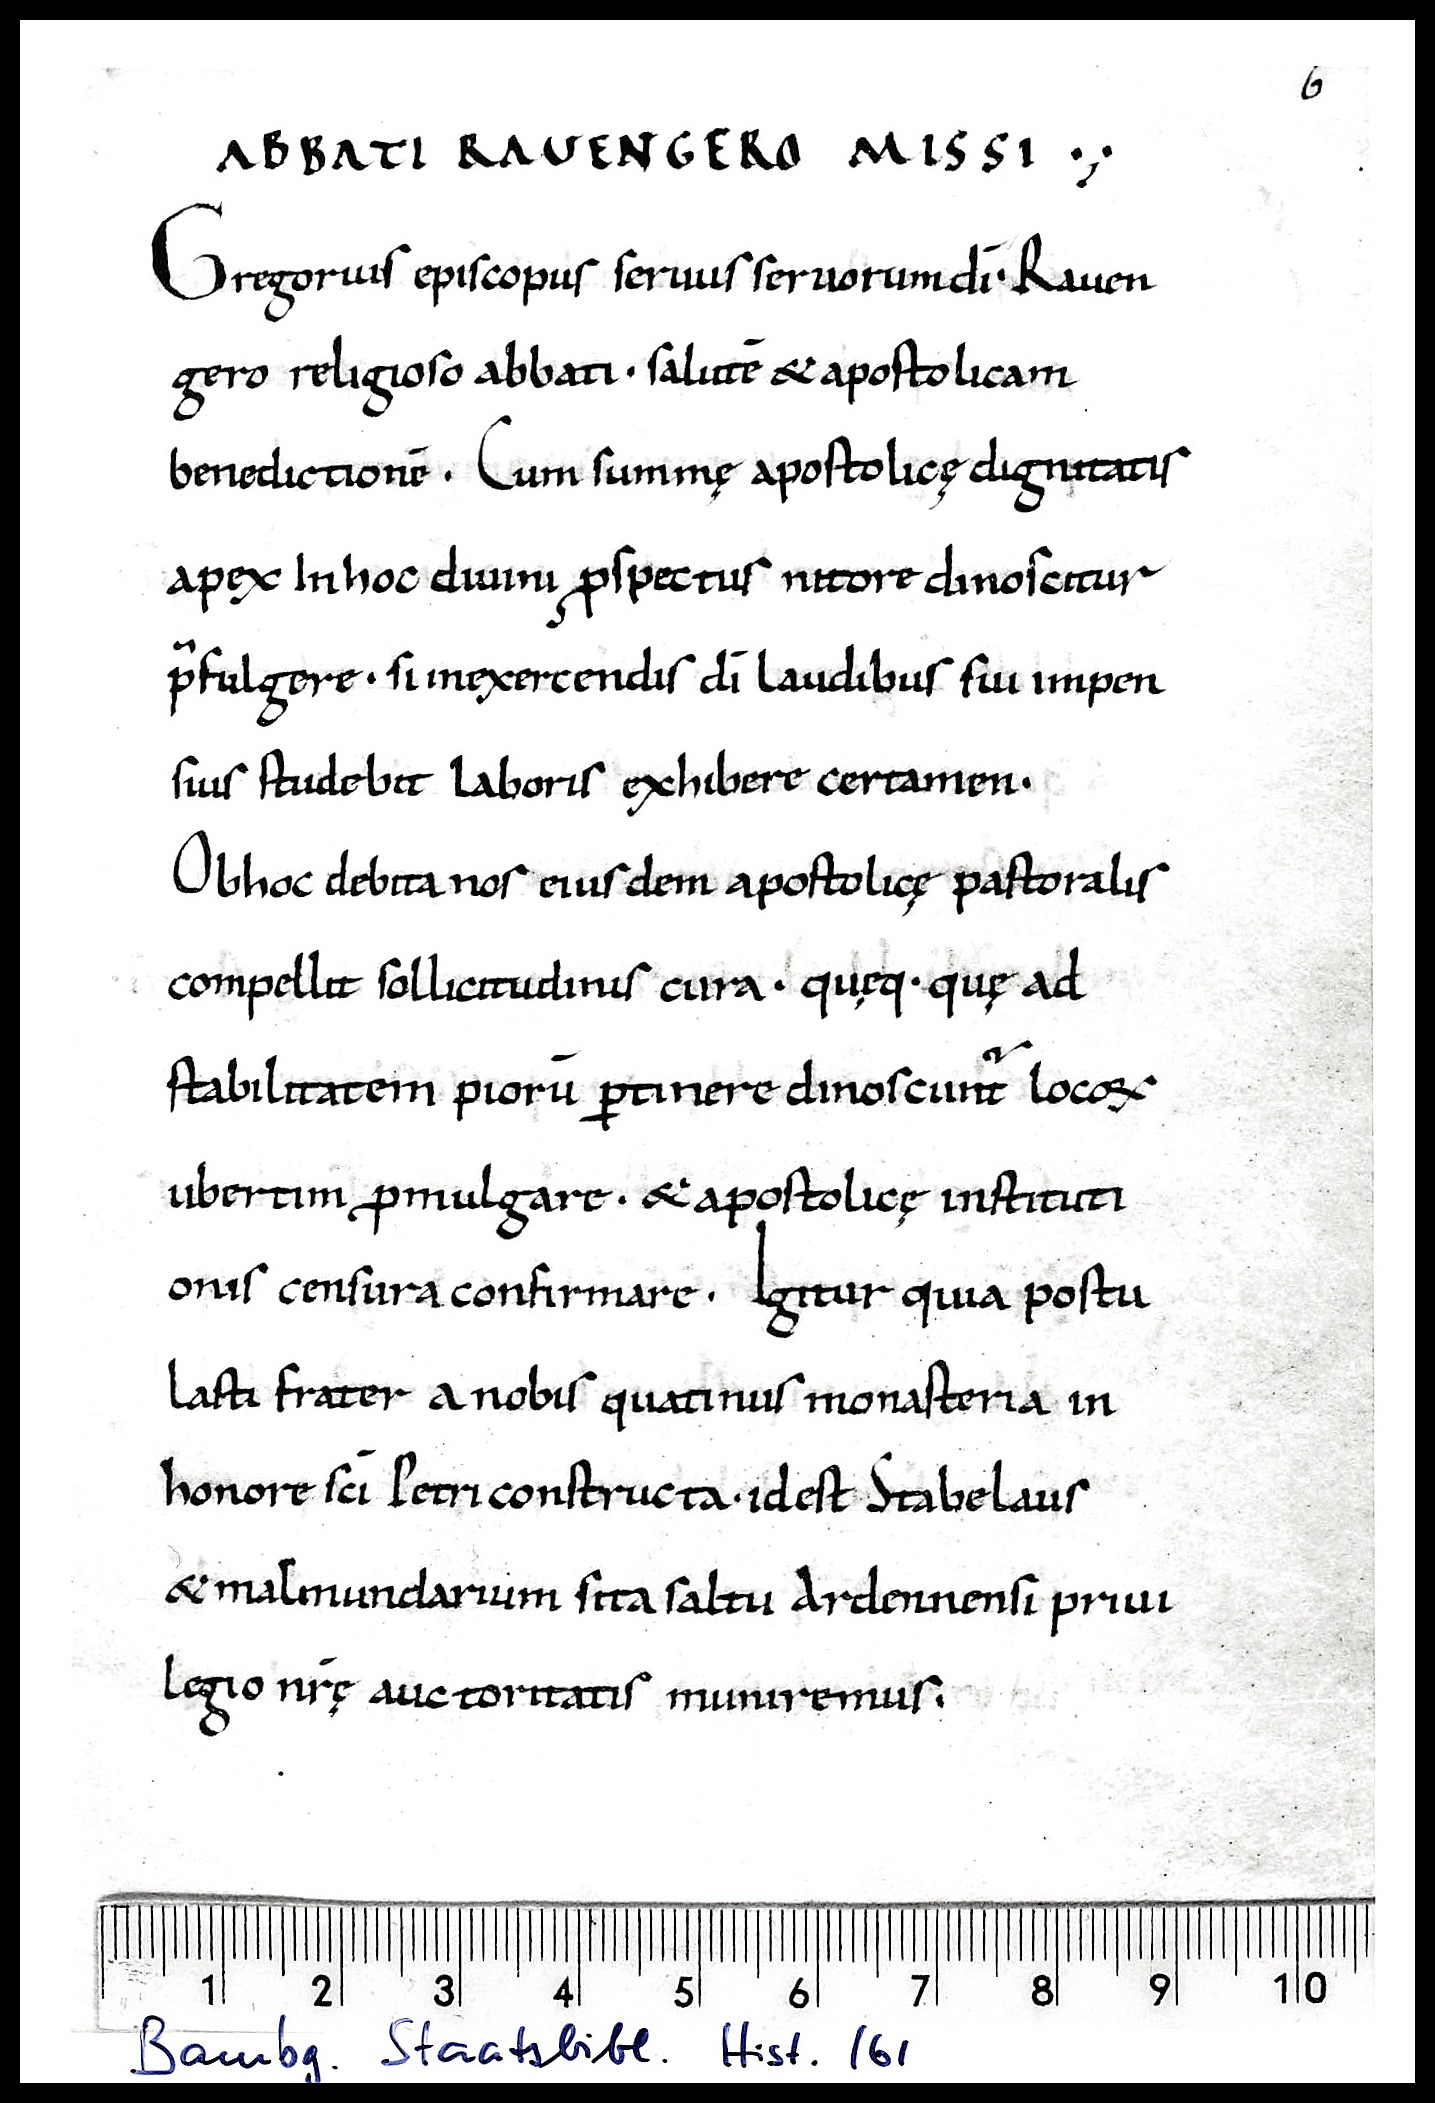 6
ABBATI RAUENGERO MISSI
Gregorius episcopus seruus seruorum dī · Rauen
gero religioso abbati · salutē & apostolicam
benedictionē · Cum summę apostolicę dignitatis
apęx In hoc diuini ꝓspectus nitore dinoscitur
p̄fulgere · si in exercendis dī laudibus sui inpen
sius studebit laboris exhibere certamen ·
Ob hoc debita nos eiusdem apostolicę pastoralis
compellit sollicitudinis cura · quęq · quę ad
stabilitatem piorū ꝑtinere dinoscunt᷑ locoꝝ
ubertim ꝓmulgare · & apostolicę instituti
onis censura confirmare · Igitur quia postu
lasti frater a nobis quatinus monasteria in
honore scī Petri constructa · id est Stabelaus
& malmundarium sita saltu Ardennensi priui
legio nr̄ę auctoritatis muniremus.
1 2 3 4 5 6 7 8 9 10
Bambg. Staatsbibl. Hist. 161